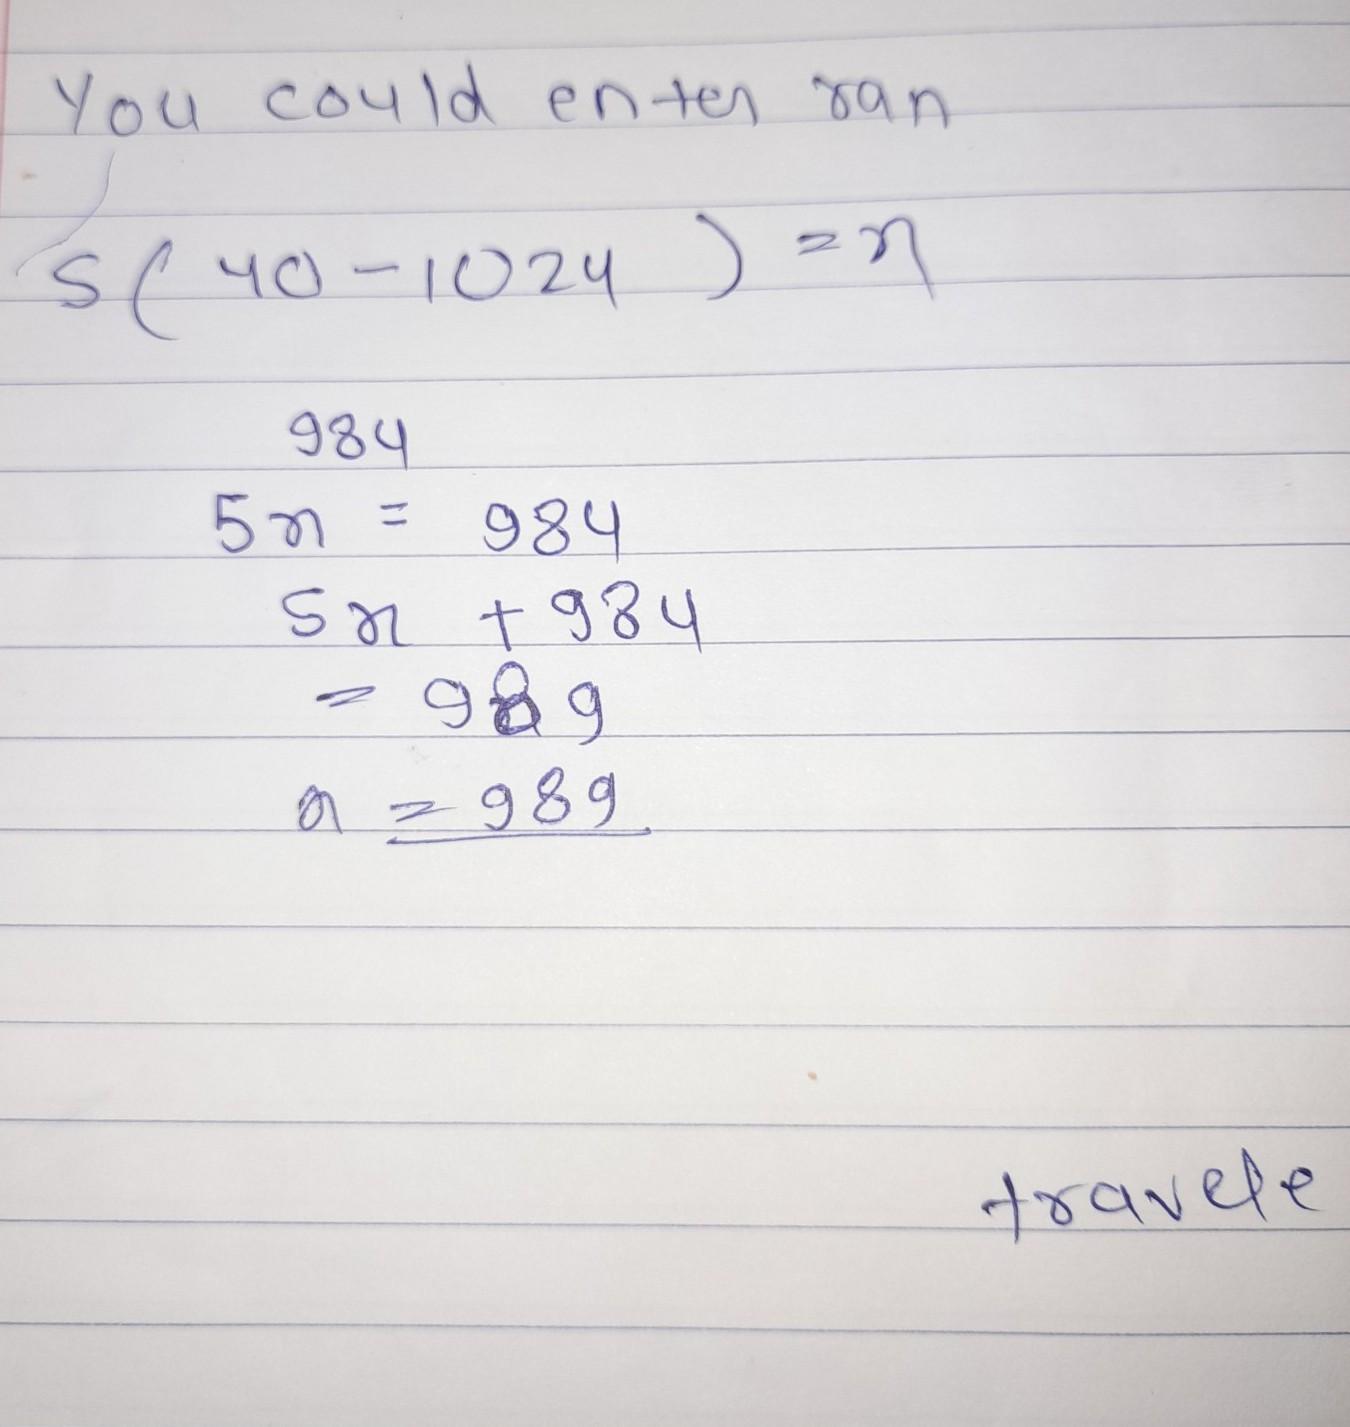 You could enter ran
5( 40-1024 ) = n
984
5n = 984
5n + 984
= 989
n = 989
travele